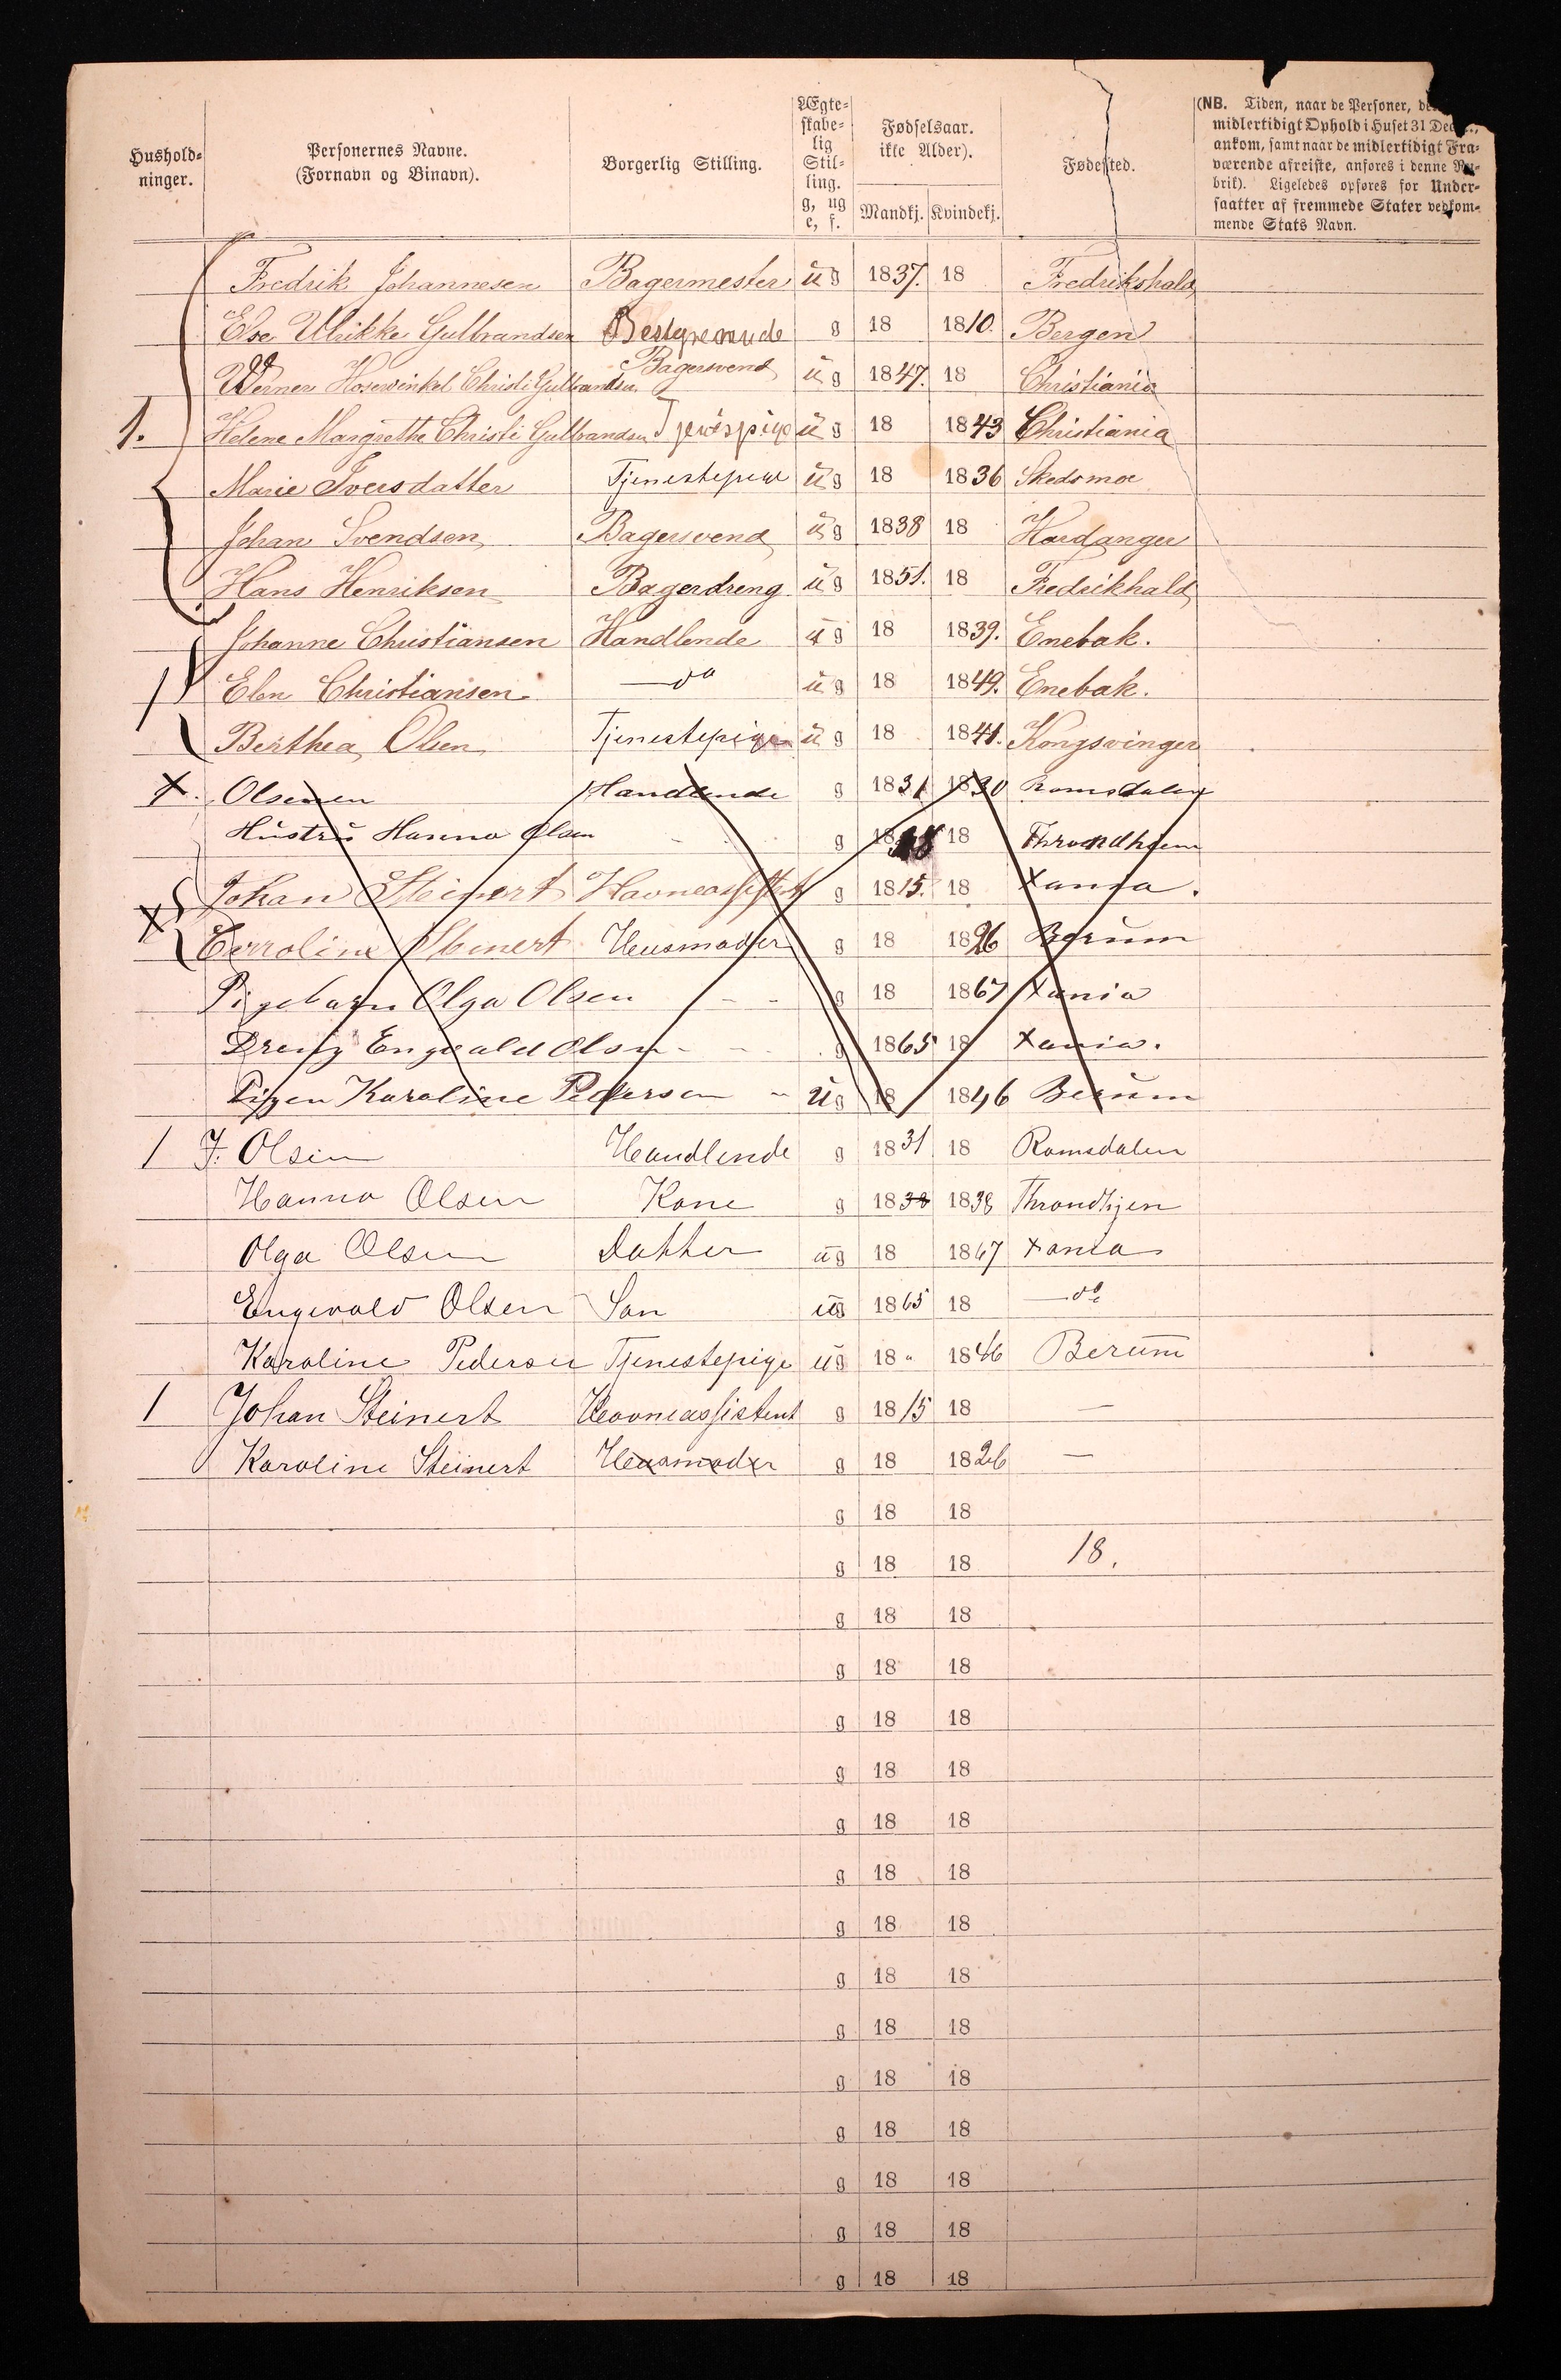 Hushold-
ninger.
Personernes Navne.
(Fornavn og Binavn).
Borgerlig Stilling.
Ægte-
skabe-
lig
Stil-
ling.
g, ug
e, f.
Fødselsaar.
ikke Alder).
Mandkj. Kvindekj.
Fødested.
(NB. Tiden, naar de Personer,
midlertidigt Ophold i Huset 31
ankom, samt naar de midlertidigt Fra-
værende afreiste, anføres i denne Ru-
brik). Ligeledes opføres for Under-
saatter af fremmede Stater vedkom-
mende Stats Navn.
Fredrik Johannesen Bagermester ug 1837. 18 Fredrikshald
Else Ulrikke Gulbrandsen g 18 1810. Bergen
Werner Christi Gulbrandsen Bagersvend ug 1847. 18 Christiania
1. Helene Margrethe Christi Gulbrandsen ug 18 1843 Christiania
Marie Iversdatter Tjenestepige ug 18 1836 Skedsmoe
Johan Svendsen Bagersvend ug 1838 18 Hardanger
Hans Henriksen Bagerdreng ug 1851. 18 Fredrikhald
Johanne Christiansen Handlende ug 18 1839. Enebak.
1 Elen Christiansen do ug 18 1849. Enebak.
Berthea Olsen Tjenestepige ug 18 1841. Kongsvinger
Olsen Handlende g 1831 1830 Romsdalen
Hustru Hanna Olsen g 18 18 Throndhjem
Johan Steinert Havneassistent g 1815. 18 Xania.
Steinert Husmoder g 18 1826 Berum
Pigebarn Olga Olsen - - g 18 1867 Xania
Dreng Engvald Olsen - - g 1865 18 Xania.
Pigen Karoline Pedersen - ug 18 1846 Berum
1 J. Olsen Handlende g 1831 18 Romsdalen
Hanna Olsen Kone g 1838 1838 Throndhjen
Olga Olsen Datter ug 18 1867 Xania
Engvald Olsen Søn ug 1865 18 — do
Karoline Pedersen Tjenestepige ug 18 " 1846 Berum
1 Johan Steinert Havneassistent g 1815 18 —
Karoline Steinert Husmoder g 18 1826 —
g 18 18
g 18 18 18.
g 18 18
g 18 18
g 18 18
g 18 18
g 18 18
g 18 18
g 18 18
g 18 18
g 18 18
g 18 18
g 18 18
g 18 18
g 18 18
g 18 18